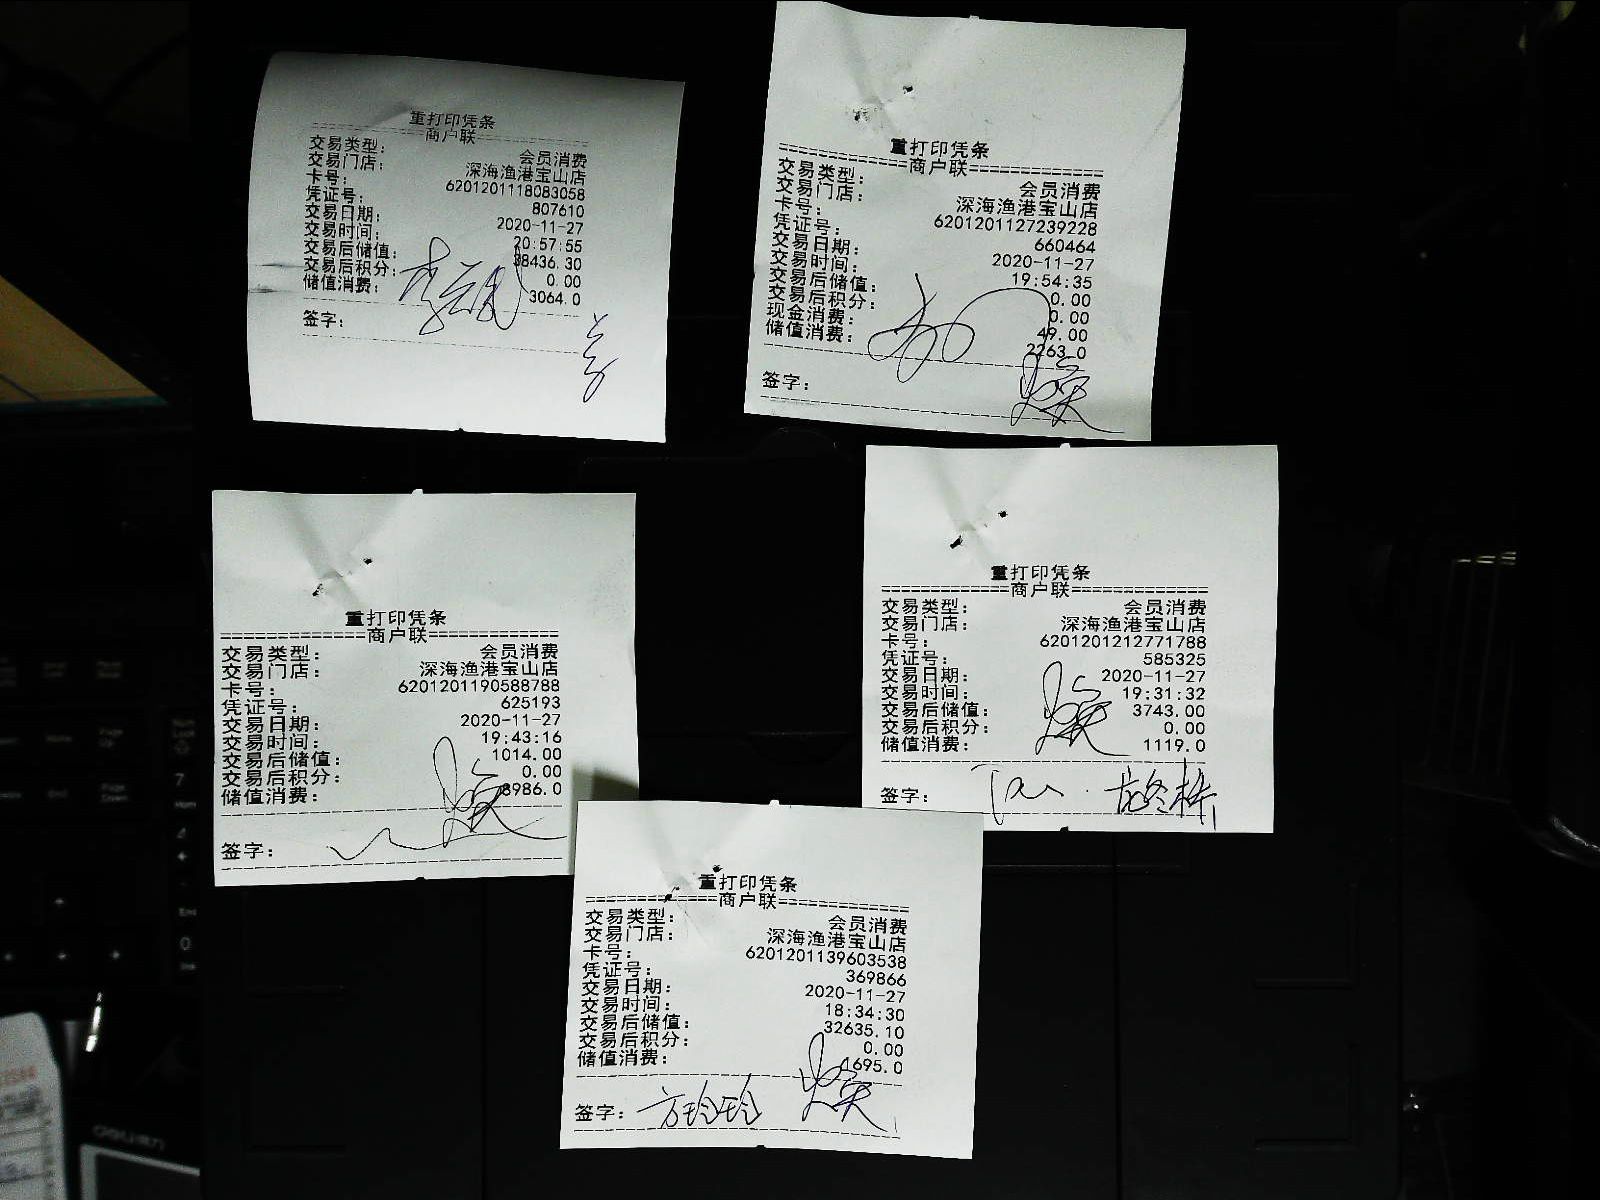 重打印凭条
商户联
交易类型: 会员消费
交易门店: 深海渔港宝山店
卡号: 6201201118083058
凭证号: 807610
交易日期: 2020-11-27
交易时间: 20:57:55
交易后储值: 38436.30
交易后积分: 0.00
储值消费: 3064.0
签字:
重打印凭条
============商户联==============
交易类型: 会员消费
交易门店: 深海渔港宝山店
卡号: 6201201127239228
凭证号: 660464
交易日期: 2020-11-27
交易时间: 19:54:35
交易后储值: 0.00
交易后积分: 0.00
现金消费: 49.00
储值消费: 2263.0
签字:
重打印凭条
==============商户联=============
交易类型: 会员消费
交易门店: 深海渔港宝山店
卡号: 6201201190588788
凭证号: 625193
交易日期: 2020-11-27
交易时间: 19:43:16
交易后储值: 1014.00
交易后积分: 0.00
储值消费: 8986.0
签字:
重打印凭条
============商户联=============
交易类型: 会员消费
交易门店: 深海渔港宝山店
卡号: 6201201212771788
凭证号: 585325
交易日期: 2020-11-27
交易时间: 19:31:32
交易后储值: 3743.00
交易后积分: 0.00
储值消费: 1119.0
签字:
重打印凭条
============商户联=============
交易类型: 会员消费
交易门店: 深海渔港宝山店
卡号: 6201201139603538
凭证号: 369866
交易日期: 2020-11-27
交易时间: 18:34:30
交易后储值: 32635.10
交易后积分: 0.00
储值消费: 695.0
签字: 方玲玲